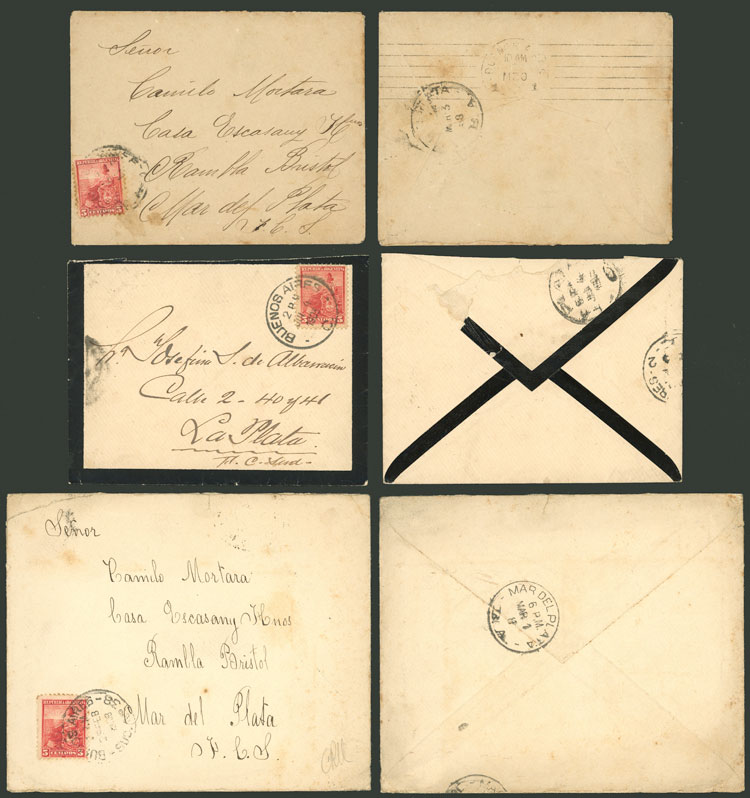 Señor
Camilo Mortara
Casa Escasany Hnos
Rambla Bristol
Mar del Plata
F.C.S.
REPUBLICA ARGENTINA
5 CENTAVOS 5
REPUBLICA ARGENTINA
BUENOS AIRES
Josefina S. de Albarracin
Calle 2 - 40 y 41
La Plata
F. C. Sud -
RES-2
Señor
Camilo Mortara
Casa Escasany Hnos
Rambla Bristol
Mar del Plata
F. C. S.
REPUBLICA ARGENTINA
5 CENTAVOS 5
MAR DEL PLATA
6 P.M.
MAR 1